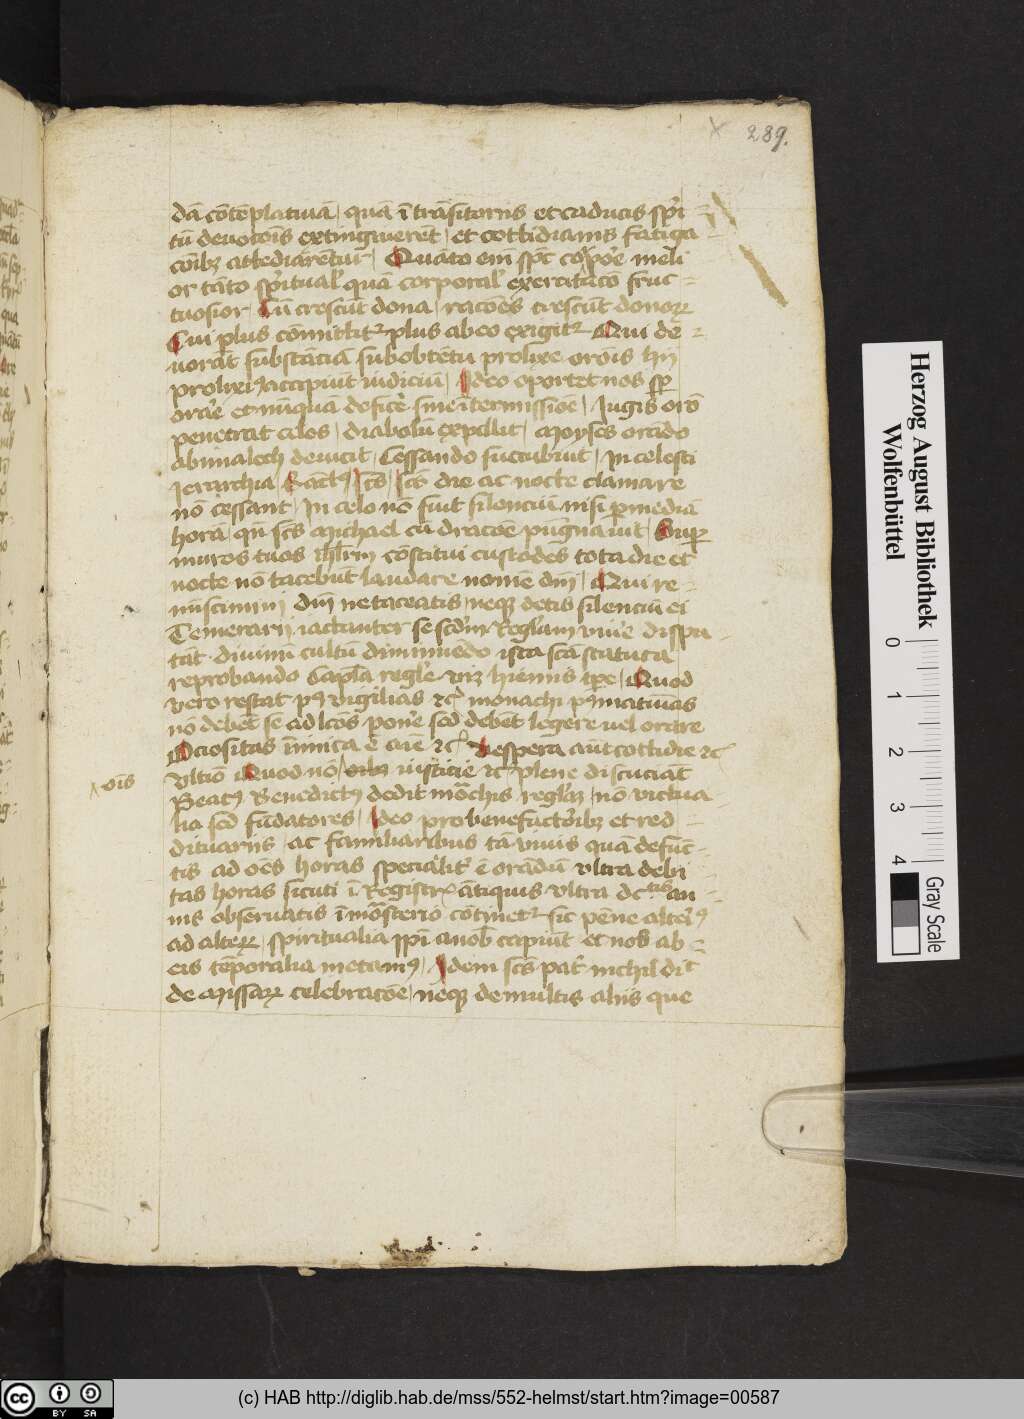 289.
dā cōtēplatiuā, quā ī trāsitoriis et caducis spūi
tū deuocōis extinguerēt, et cottidianis fatiga
cōibꝫ attediarētur, Quāto em̄ spc̄ corpoē meli
or tāto spūituał quā corporał exercitacō fruc
tuosior, Cū crescūt dona, racōēs crescūt donoꝝ
Cui plus cōmittitᷣ plus ab eo exigitᷣ Qui de
uorāt substāciā sub obtētu prolixe orōis hij
prolixi accipiūt iudiciū, Ideo oportet nos sꝑ
orāe et nūquā deficē sine ītermissiōe, Iugis orō
penetrat celos, diabolū expellit, Moyses orādo
abimalech deuicit, Cessando succubuit, In celesti
Ierarchia, Sāctꝰ scs̄ scs̄ die ac nocte clamare
nō cessant, In celo nō fuit silenciū nisi ꝑ mediā
horā, qn̄ scs̄ Michael cū dracōe pūgnauit, Suꝑ
muros tuos ihrlm cōstitui custodes tota die et
nocte nō tacebūt laudare nomē dm̄, Qui re
miscimini dm̄ ne taceatis, neqꝫ detis silenciū ei
Temerarij iactanter se scdm regłam viuē dispu
tāt, diuinū cultū diminuēdo ista scā statuta
reprobando Capła regłe viꝫ hiemis tꝑe, Quod
vero restat pꝰ vigilias ⁊cᷓ monachi pꝰ matutinas
nō debēt se ad lcōs ponē sed debēt legere uel orare
Ociositas īimica ē aīe ⁊cᷓ Vespera aūt cottidie ⁊cᷓ
vltio Quod nō vibꝫ iusticie ⁊cᷓ plene discuciāt
x oīs
Beatꝰ Benedictꝰ dedit mōchis regłaꝫ, nō victua
lia sed fūdatores, Ideo pro benefactoribꝫ et red
dituariis, ac familiaribus tā viuis quā defūc
tis ad oēs horas specialitᷣ ē orādū vltra debi
tas horas sicuti ī Registrᷓ ātiquis vltra dc tis an
nis obseruatis ī mōasterio cōtinetᷣ sic pene alterꝰ
ad alteꝝ, spiritualia ipī a nob capiūt et nos ab
eis tēporalia metamꝰ, Idem scs̄ patᷣ nichil dic̄
de Missaꝝ celebracōe, neqꝫ de multis aliis que
Herzog August Bibliothek
Wolfenbüttel
0 1 2 3 4
Gray Scale
cc BY SA
(c) HAB http://diglib.hab.de/mss/552-helmst/start.htm?image=00587